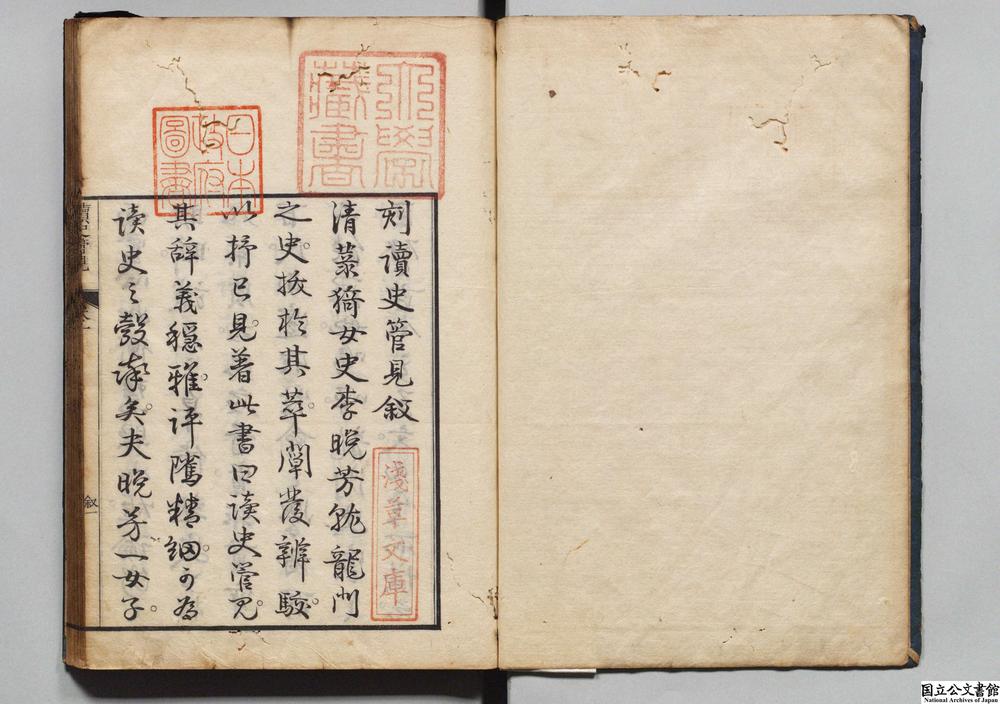 刻讀史管見叙
清菉猗女史李晚芳就龍門
之史拔於其萃闡發辨駁
以抒已見著此書曰读史管见
其辞義穏雅评隲精细可为
读史之彀率矣夫晚芳一女子
大學藏書
日本政府圖書
淺草文庫
讀史管見
叙一
国立公文書館
National Archives of Japan